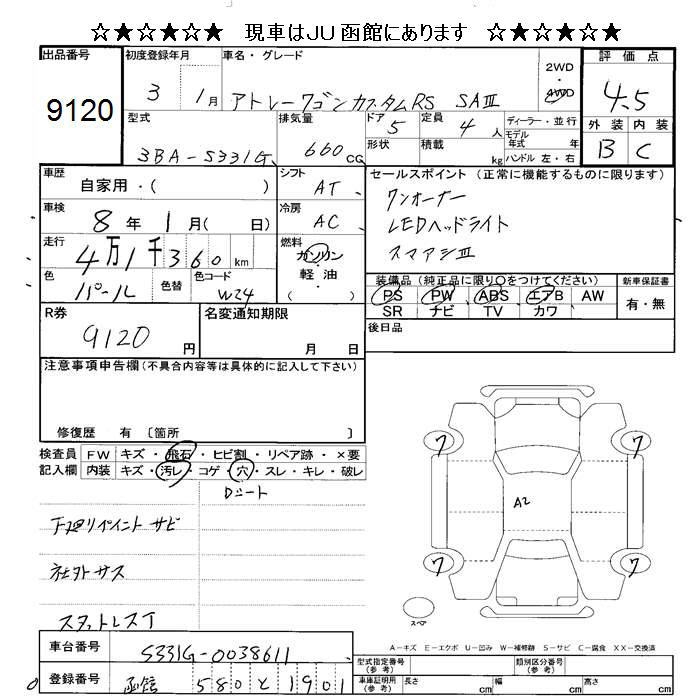 ☆★☆★☆★ 現車はJU函館にあります ☆★☆★☆★
出品番号 9120
初度登録年月 3 1月
車名・グレード アトレーワゴンカスタムRS SAⅢ
2WD・4WD
評価点 4.5
外装 B 内装 C
型式 3BA-S331G
排気量 660cc
ドア 5 形状
定員 4人 積載 kg
ディーラー・並行
モデル年式 年
ハンドル 左・右
車歴 自家用・( )
シフト AT
車検 8年1月( 日)
冷房 AC
走行 4万1千360km
燃料 ガソリン・軽油 ( )
色 パール 色替 色コード W24
セールスポイント (正常に機能するものに限ります)
ワンオーナー
LEDヘッドライト
スマアシⅢ
装備品(純正品に限り○をつけてください)
PS PW ABS エアB AW
SR ナビ TV カワ
新車保証書 有・無
R券 9120 円
名変通知期限 月 日
後日品
注意事項申告欄(不具合内容等は具体的に記入して下さい)
修復歴 有 〔箇所 〕
検査員記入欄
FW キズ・飛石・ヒビ割・リペア跡・×要
内装 キズ・汚レ・コゲ・穴・スレ・キレ・破レ
Dシート
下廻リペイント サビ
社外サス
スタットレスT
7 7
A2
7 7
スペア
A-キズ E-エクボ U-凹み W-補修跡 S-サビ C-腐食 XX-交換済
車台番号 S331G-0038611
登録番号 函館 580 と 1901
型式指定番号(参考) 類別区分番号(参考)
車庫証明用(参考) 長さ cm 幅 cm 高さ cm